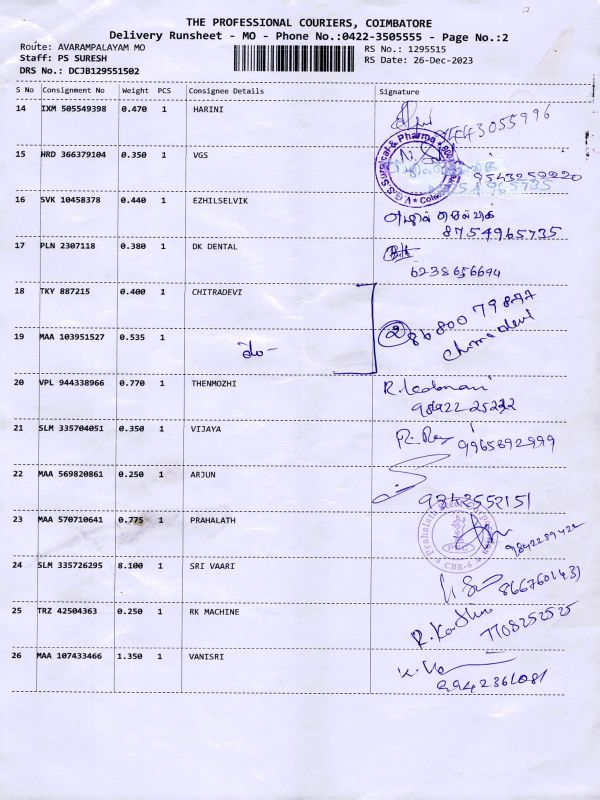 THE PROFESSIONAL COURIERS, COIMBATORE
Delivery Runsheet - MO - Phone No.:0422-3505555 - Page No.:2
Route: AVARAMPALAYAM MO RS No.: 1295515
Staff: PS SURESH RS Date: 26-Dec-2023
DRS No.: DCJB129551502
S No Consignment No Weight PCS Consignee Details Signature
14 IXM 505549398 0.470 1 HARINI
15 HRD 366379104 0.350 1 VGS
V.G.S. Surgical & Pharma
9543059920
8754965735
16 SVK 10458378 0.440 1 EZHILSELVIK
8754965735
17 PLN 2307118 0.380 1 DK DENTAL
6238656694
18 TKY 887215 0.400 1 CHITRADEVI
19 MAA 103951527 0.535 1
2
20 VPL 944338966 0.770 1 THENMOZHI
21 SLM 335704051 0.350 1 VIJAYA
9965892999
22 MAA 569820861 0.250 1 ARJUN
9843552151
23 MAA 570710641 0.775 1 PRAHALATH
CBE-6
9842289422
24 SLM 335726295 8.100 1 SRI VAARI
8667601431
25 TRZ 42504363 0.250 1 RK MACHINE
7708252525
26 MAA 107433466 1.350 1 VANISRI
9942361081